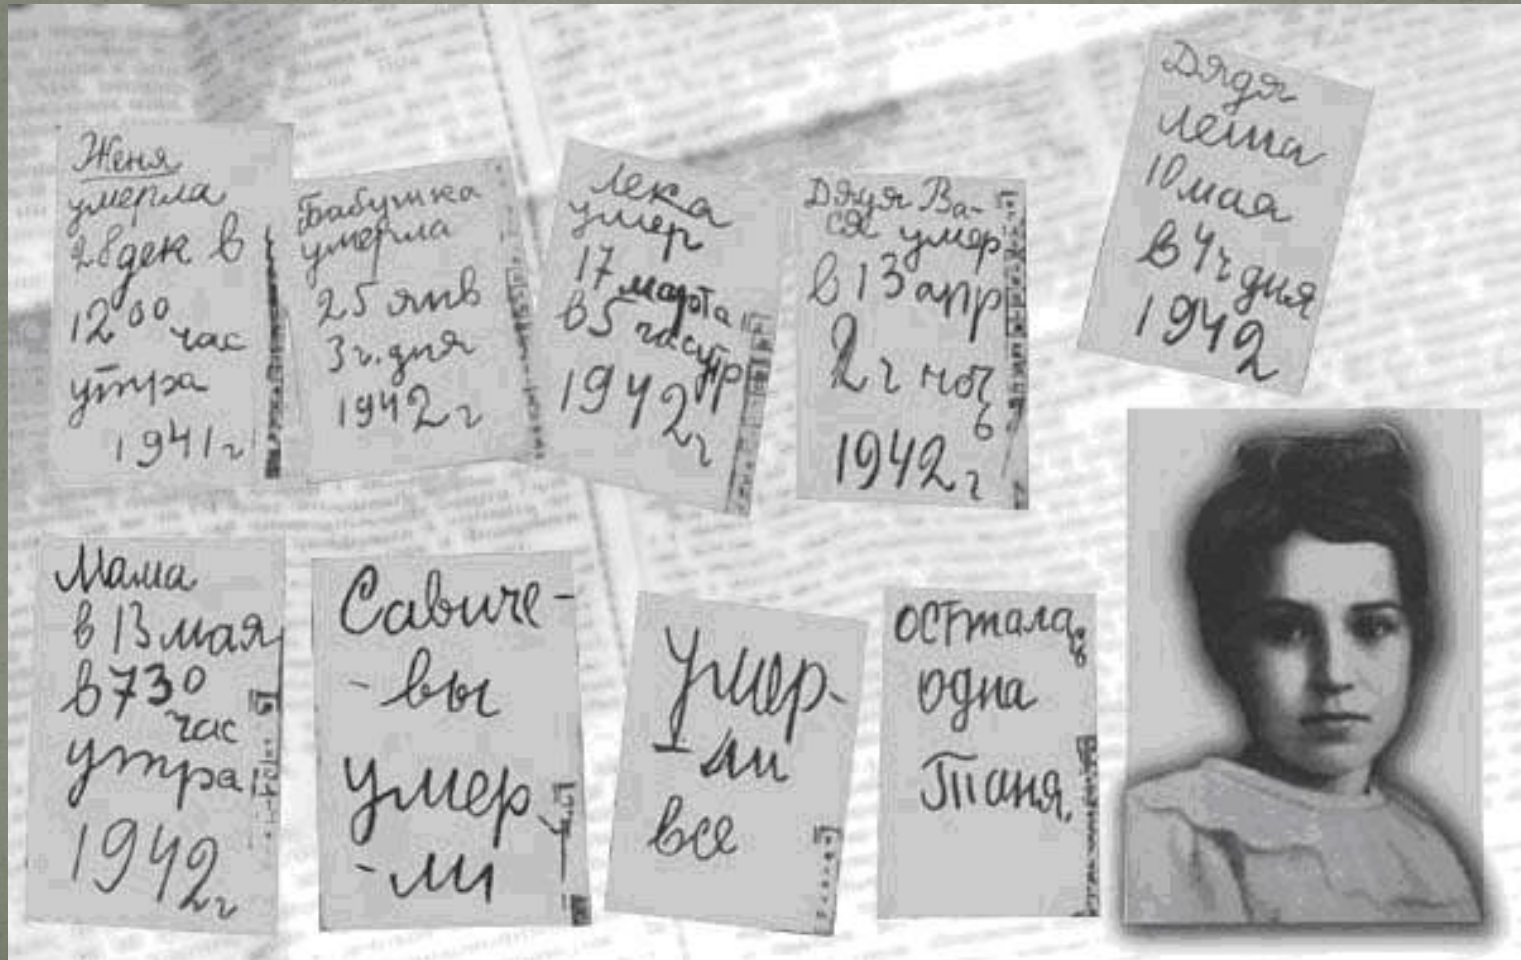 Женя
умерла
28 дек в
12 00 час
утра
1941 г
Бабушка
умерла
25 янв
3 ч. дня
1942 г
Лека
умер
17 марта
в 5 час утр
1942 г
Дядя Ва-
ся умер
в 13 апр
2 ч ноч
ь
1942 г
Дядя
Леша
10 мая
в 4 ч дня
1942
Мама
в 13 мая
в 7 30
час
утра
1942 г
Савиче-
-вы
умер
-ли
Умер-
-ли
все
осталась
одна
Таня.